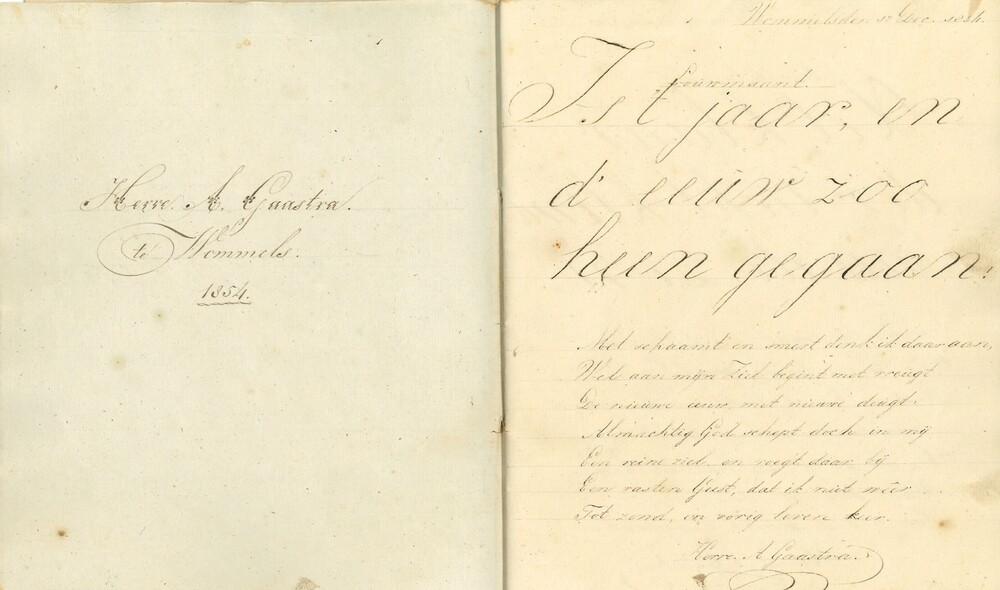 Herre. A. Gaastra.
te Wommels.
1854.
Wommels den Dec. 1854.
Louwmaant.
Is t jaar, en
d' eeuw zoo
heen gegaan:
Met schaamt en smert denk ik daar aan,
Wel aan mijn Ziel begint met vreugt
De nieuwe eeuw, met nieuwe deugt.
Almachtig God schept doch in mij
Een reine ziel, en voegt daar bij
Een vasten Geest, dat ik niet wêer
Tot zond, en vorig leven keer.
Herre. A Gaastra.